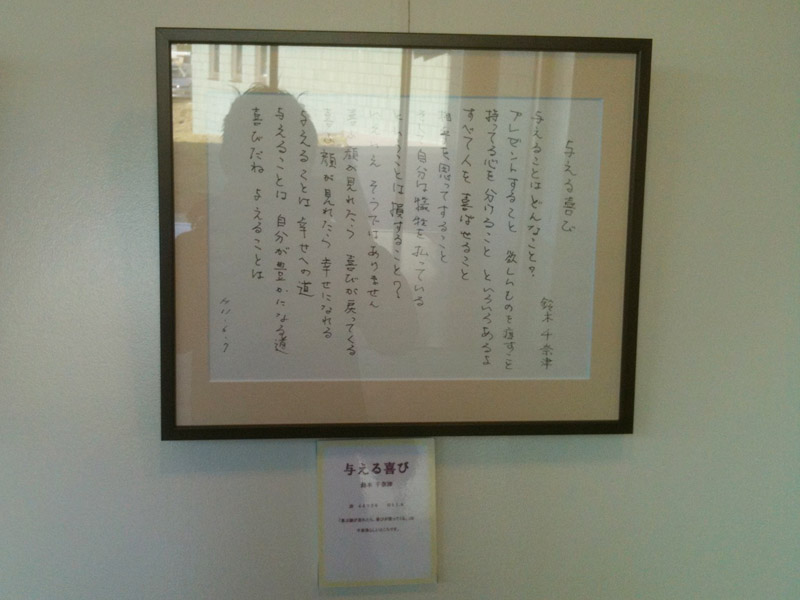 与える喜び
鈴木 千奈津
与えることはどんなこと?
プレゼントすること 欲しいものを渡すこと
持ってる心を分けること といろいろあるよ
すべて人を喜ばせること
思ってすること
自分は犠牲を払っている
ということは損すること?
いいえ そうではありません
喜ぶ顔が見れたら 喜びが戻ってくる
喜ぶ顔が見れたら 幸せになれる
与えることは 幸せへの道
与えることは 自分が豊かになる道
喜びだね 与えることは
H11.6.9
与える喜び
鈴木 千奈津